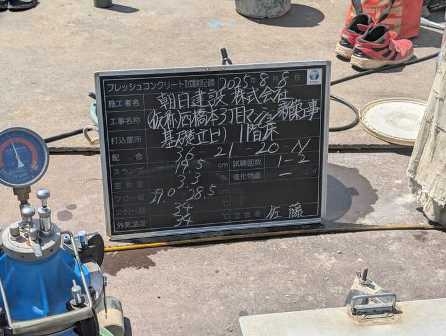 フレッシュコンクリート試験記録 2025年8月8日
施工者名 朝日建設 株式会社
工事名称 (仮称)西橋本5丁目マンション新築工事
打込箇所 基礎立上り 1階床
配合 36-21-20-N
スランプ 19.5 cm 試験回数 1-2
空気量 3.3 % 塩化物量 -
フロー 29.0 × 28.5
34
外気温 34 佐藤